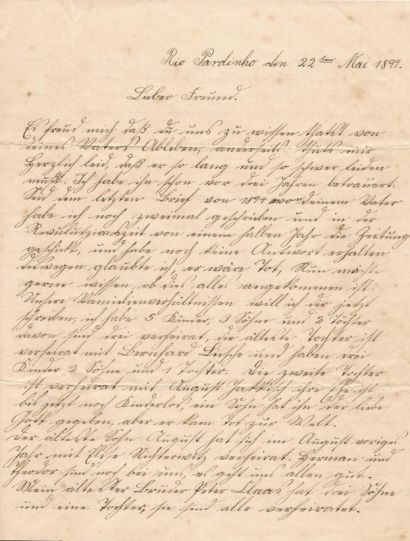 Rio Pardinho den 22ten Mai 1899.
Lieber Freund.
Es freud mich daß du uns zu wissen thatst von
deines Vaters Ableben, anderseits thuts mir
Herzlich leid, daß er so lang und so schwer leiden
mußt. Ich habe ihn schon vor drei Jahren betrauert.
Seid dem letzten Brief von 1894 von deinem Vater
habe ich noch zweimal geschrieben und in der
von einem halben Jahr die Zeitung
geschickt, und habe noch keine Antwort erhalten
deswegen glaubte ich, er wäre Tot, Nun möcht
gerne wissen, ob dies alles angekommen ist.
Unsere Familienverhältnissen will ich dir jetzt
schreiben, ich habe 5 Kinder, 3 Söhne und 2 Töchter
davon sind drei verheirat, die älteste Tochter ist
verheirat mit Bernhard und haben drei
Kinder 2 Söhne und 1 Tochter. Die zweite Tochter
ist verheirat mit August ihre Ehe ist
bis jetzt noch Kinderlos, ein Sohn hat ihn der liebe
Gott gegeben, aber er kam tot zur Welt.
Der älteste Sohn August hat sich im August voriges
Jahr mit Elise verheirat. Herman und
Theodor sind noch bei uns, es geht uns allen gut.
Mein ältester Bruder Peter Claas hat drei Söhne
und eine Tochter, sie sind alle verheiratet.